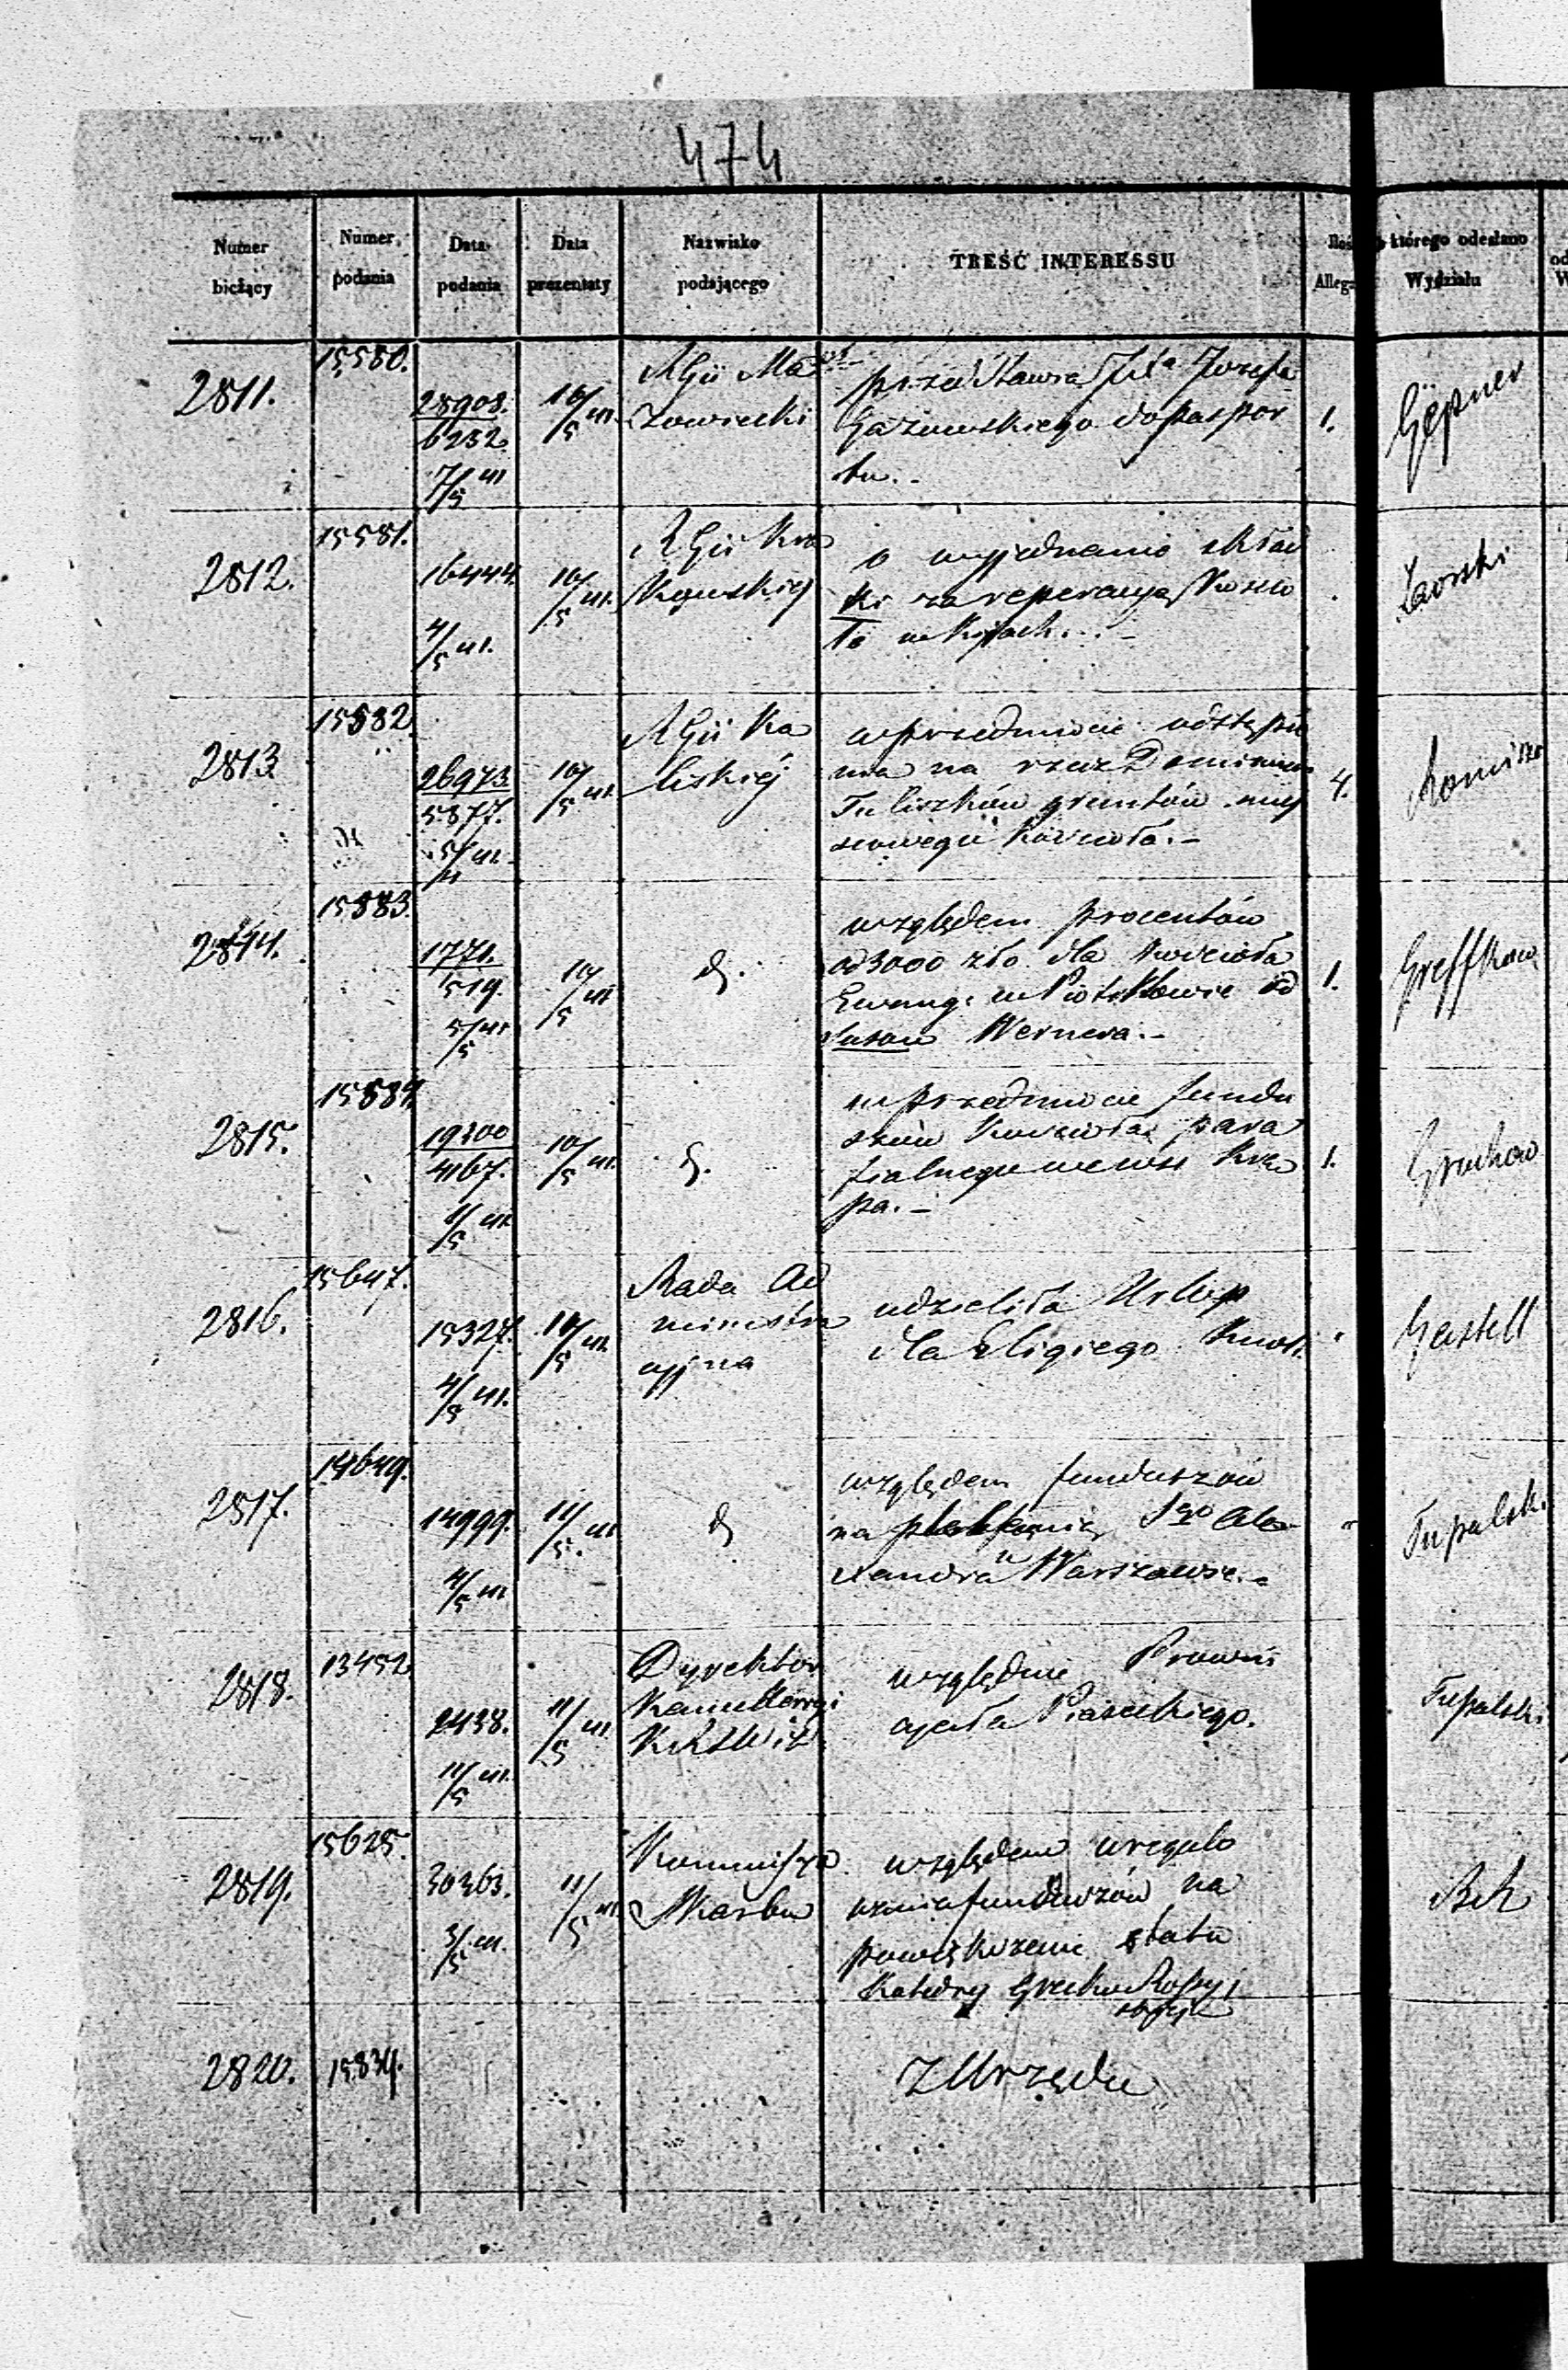 474
Numer bieżący
Numer podania
Data podania
Data prezentaty
Nazwisko podającego
TREŚĆ INTERESSU
Ilość Allega
którego odesłano Wydziału
2811.
15580.
28908.
6232.
7/5 m
10/5 m.
RGu Ma
zowiecki
przedstawia Józefa
do paszpor
tu.-
1.
Gepner
2812.
15581.
16444.
4/5 m.
10/5 m.
RGu Kra
kowskiej
o wyjednanie skład
ki na reperacyą Koscio
ła w Kijach. -
Zaorski
2813
15582.
26973.
5877.
5/m
10/5 m.
RGu Ka
liskiej
w przedmiocie odstąpie
nia na rzecz Dominium
Tuliszków gruntów miej
scowego Kościoła.-
4.
2814.
15583.
1771.
519.
5/5 m
10/5 m
d.
względem procentów
od 3000 zło. dla Kościoła
Ewang. w Piotrkowie od
Wernera.-
1.
2815.
15584.
19200
4167.
1/5 m
10/5 m.
d.
w przedmiocie fundu
szów Kościoła para
fialnego we wsi Krze
pa.-
1.
2816.
15647.
15327.
4/5 m.
10/5 m.
Rada Ad
ministra
cyjna
udzieliła Urlop
dla Eligiego
Gastell
2817.
14649.
14999.
4/5 m
11/5 m
d
względem funduszów
na Sgo Ale
xandra w Warszawie.-
Tupalsk.
2818.
13452
2438.
11/5 m.
11/5 m.
Dyrektor
Kancellaryi
względnie Prowin
cyała Piaseckiego.
Tupalski
2819.
15625.
30363.
3/5 m.
11/5 m.
Kommissya
Skarbu
względem uregulo
wania funduszów na
powiększenie etatu
Katedry Grecko Rossyj
skiej
2820.
15834.
z Urzędu